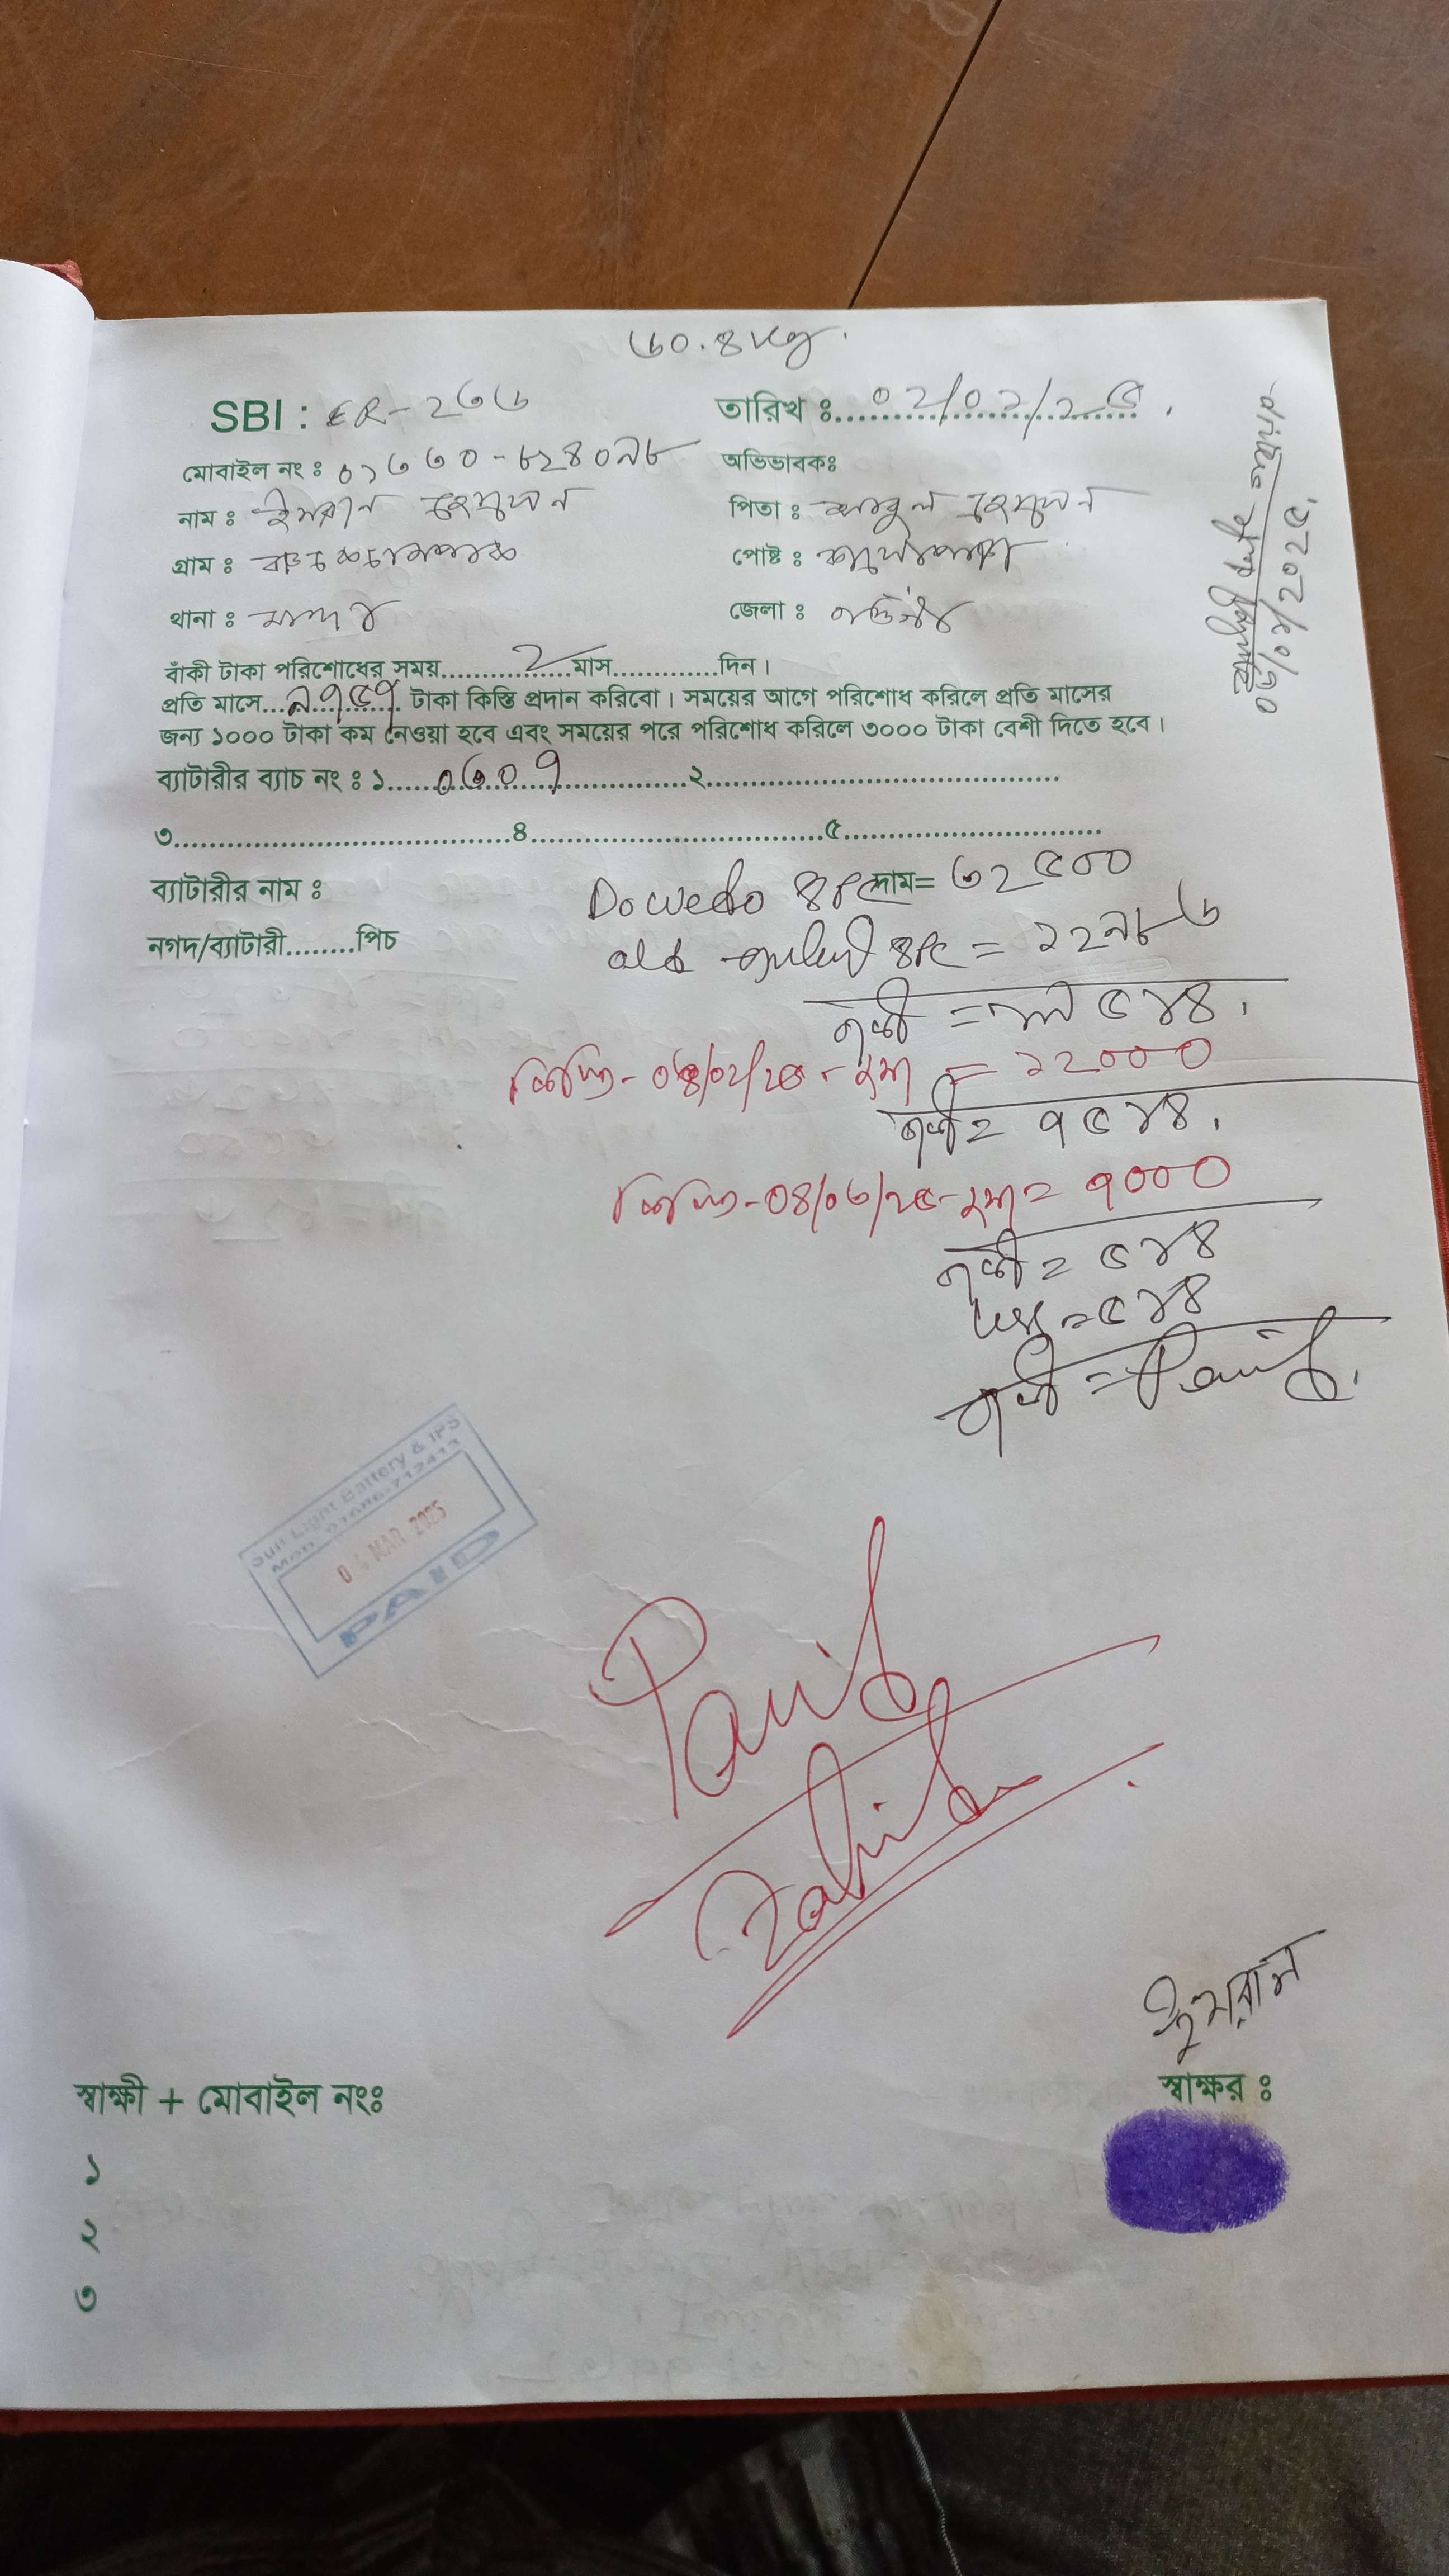 ৬০.৪ Kg.
SBI : ER-2৩৬
তারিখ ঃ ০২/০২/২৫
মোবাইল নং ঃ ০১৩৩০-৮২৪০৯৮
অভিভাবকঃ
নাম ঃ ইমরান হোসেন
পিতা ঃ আবুল হোসেন
গ্রাম ঃ
পোষ্ট ঃ
থানা ঃ
জেলা ঃ
বাঁকী টাকা পরিশোধের সময়..............২..মাস..............দিন।
প্রতি মাসে...৯৭৫৭.. টাকা কিস্তি প্রদান করিবো। সময়ের আগে পরিশোধ করিলে প্রতি মাসের
জন্য ১০০০ টাকা কম নেওয়া হবে এবং সময়ের পরে পরিশোধ করিলে ৩০০০ টাকা বেশী দিতে হবে।
ব্যাটারীর ব্যাচ নং ঃ ১......০৩০৭..............২......................................
৩....................................৪...............................৫............................
ব্যাটারীর নাম ঃ
৪PC দাম= ৩২৫০০
নগদ/ব্যাটারী........পিচ
old ৪PC = ১২৯৮৬
বাকী = ১৯৫১৪.
কিস্তি- /০২/২৫ - ১ম = ১২০০০
বাকী= ৭৫১৪.
কিস্তি-০৪/০৩/২৫-২য়= ৭০০০
বাকী= ৫১৪
Less=৫১৪
বাকী = Paid.
Sun Light Battery & IPS
04 MAR 2025
PAID
Paid
Zahid
ইমরান
স্বাক্ষী + মোবাইল নংঃ
স্বাক্ষর ঃ
১
২
৩